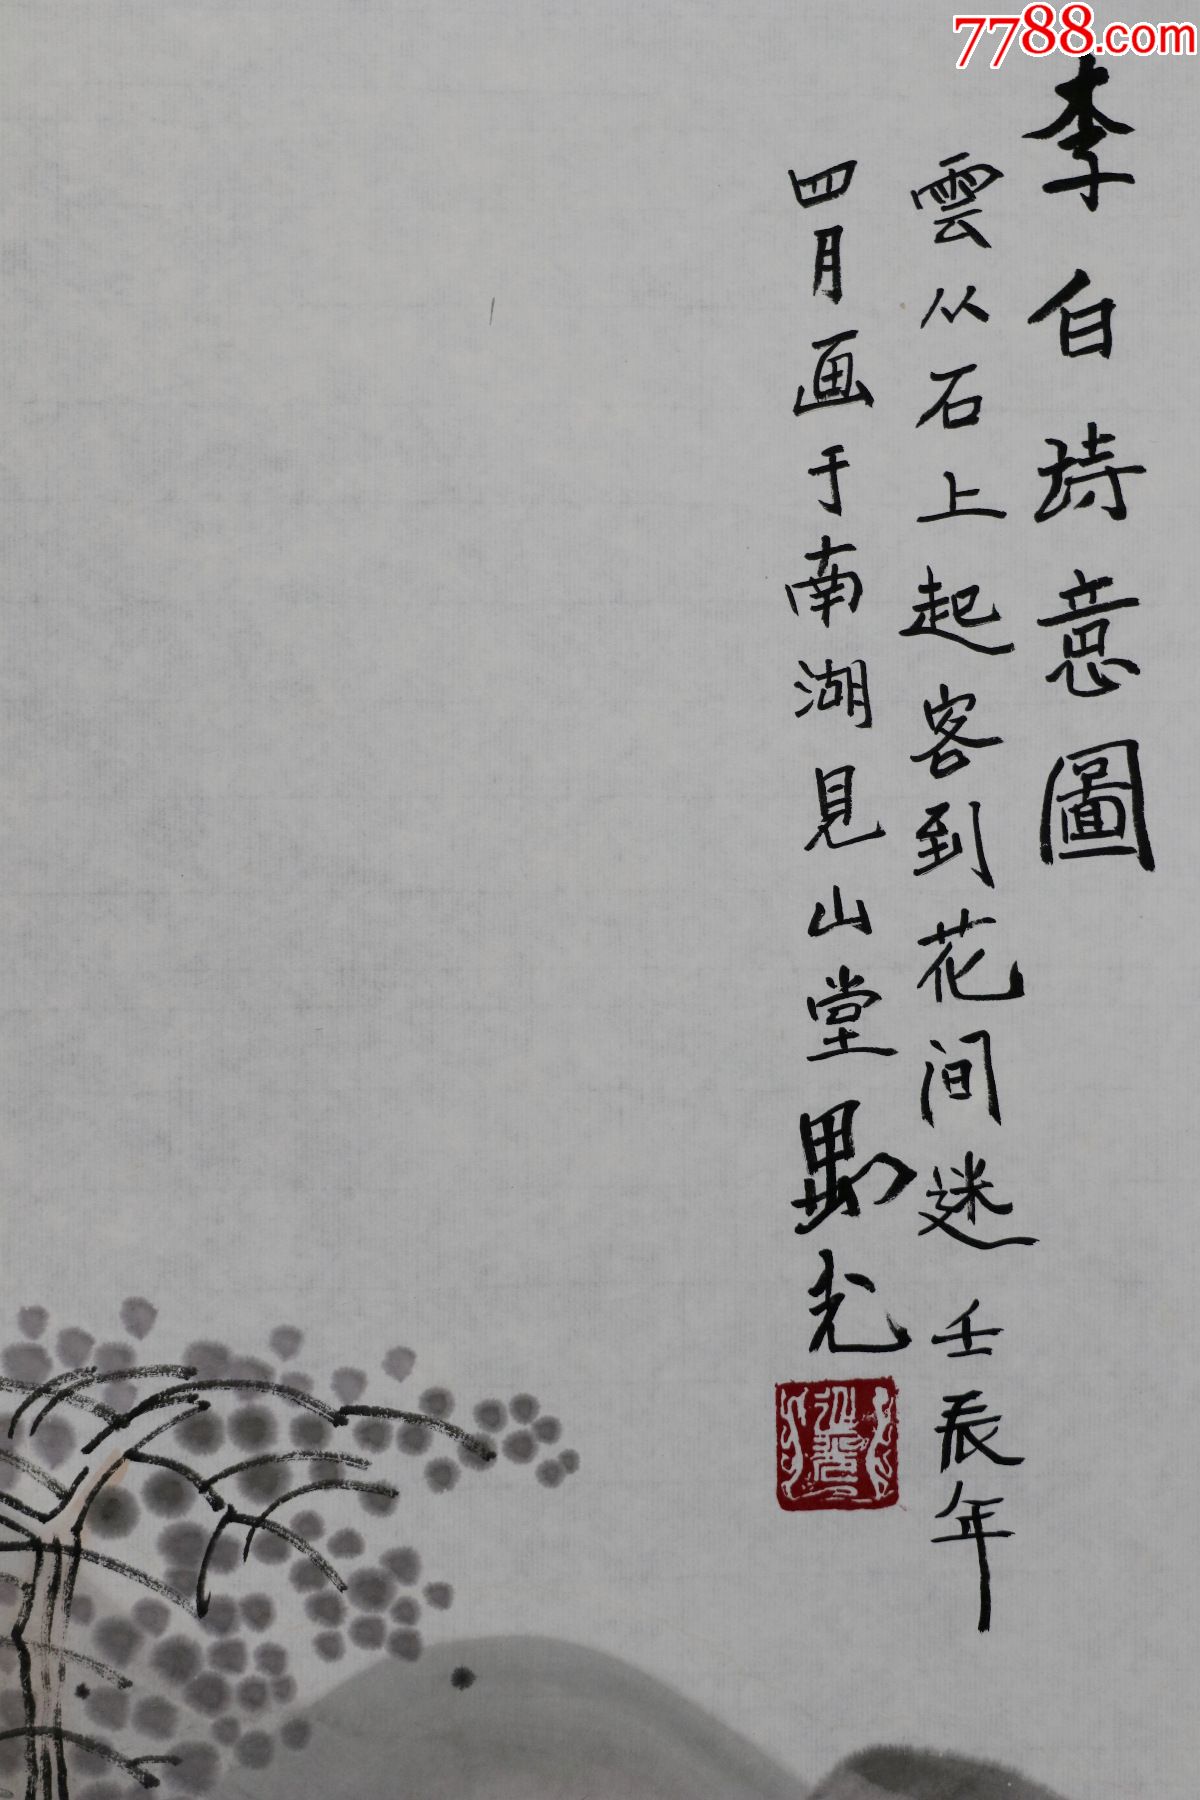 7788.com
李白詩意圖
雲从石上起客到花间迷壬辰年
四月画于南湖見山堂